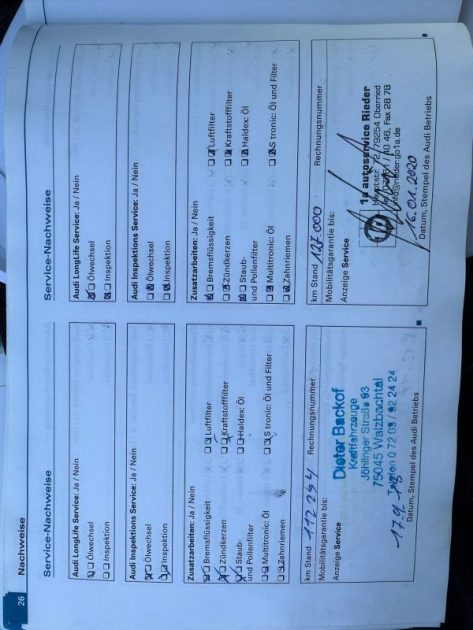 26
Nachweise
Service-Nachweise
Audi LongLife Service: Ja / Nein
Ölwechsel
Inspektion
Audi Inspektions Service: Ja / Nein
Ölwechsel
Inspektion
Zusatzarbeiten: Ja / Nein
Bremsflüssigkeit
Luftfilter
Zündkerzen
Kraftstofffilter
Staub-
und Pollenfilter
Haldex: Öl
Multitronic: Öl
S tronic: Öl und Filter
Zahnriemen
km Stand 112 294 Rechnungsnummer
Mobilitätsgarantie bis:
Anzeige Service
Dieter Backof
Kraftfahrzeuge
Jöhlinger Straße 93
75045 Walzbachtal
Telefon 0 72 03 / 92 24 24
Datum, Stempel des Audi Betriebs
Service-Nachweise
Audi LongLife Service: Ja / Nein
Ölwechsel
Inspektion
Audi Inspektions Service: Ja / Nein
Ölwechsel
Inspektion
Zusatzarbeiten: Ja / Nein
Bremsflüssigkeit
Luftfilter
Zündkerzen
Kraftstofffilter
Staub-
und Pollenfilter
Haldex: Öl
Multitronic: Öl
S tronic: Öl und Filter
Zahnriemen
km Stand 127.000 Rechnungsnummer
Mobilitätsgarantie bis:
Anzeige Service
1a autoservice Rieder
79254 Oberried
40 46, Fax 28 78
16.01.2020
Datum, Stempel des Audi Betriebs